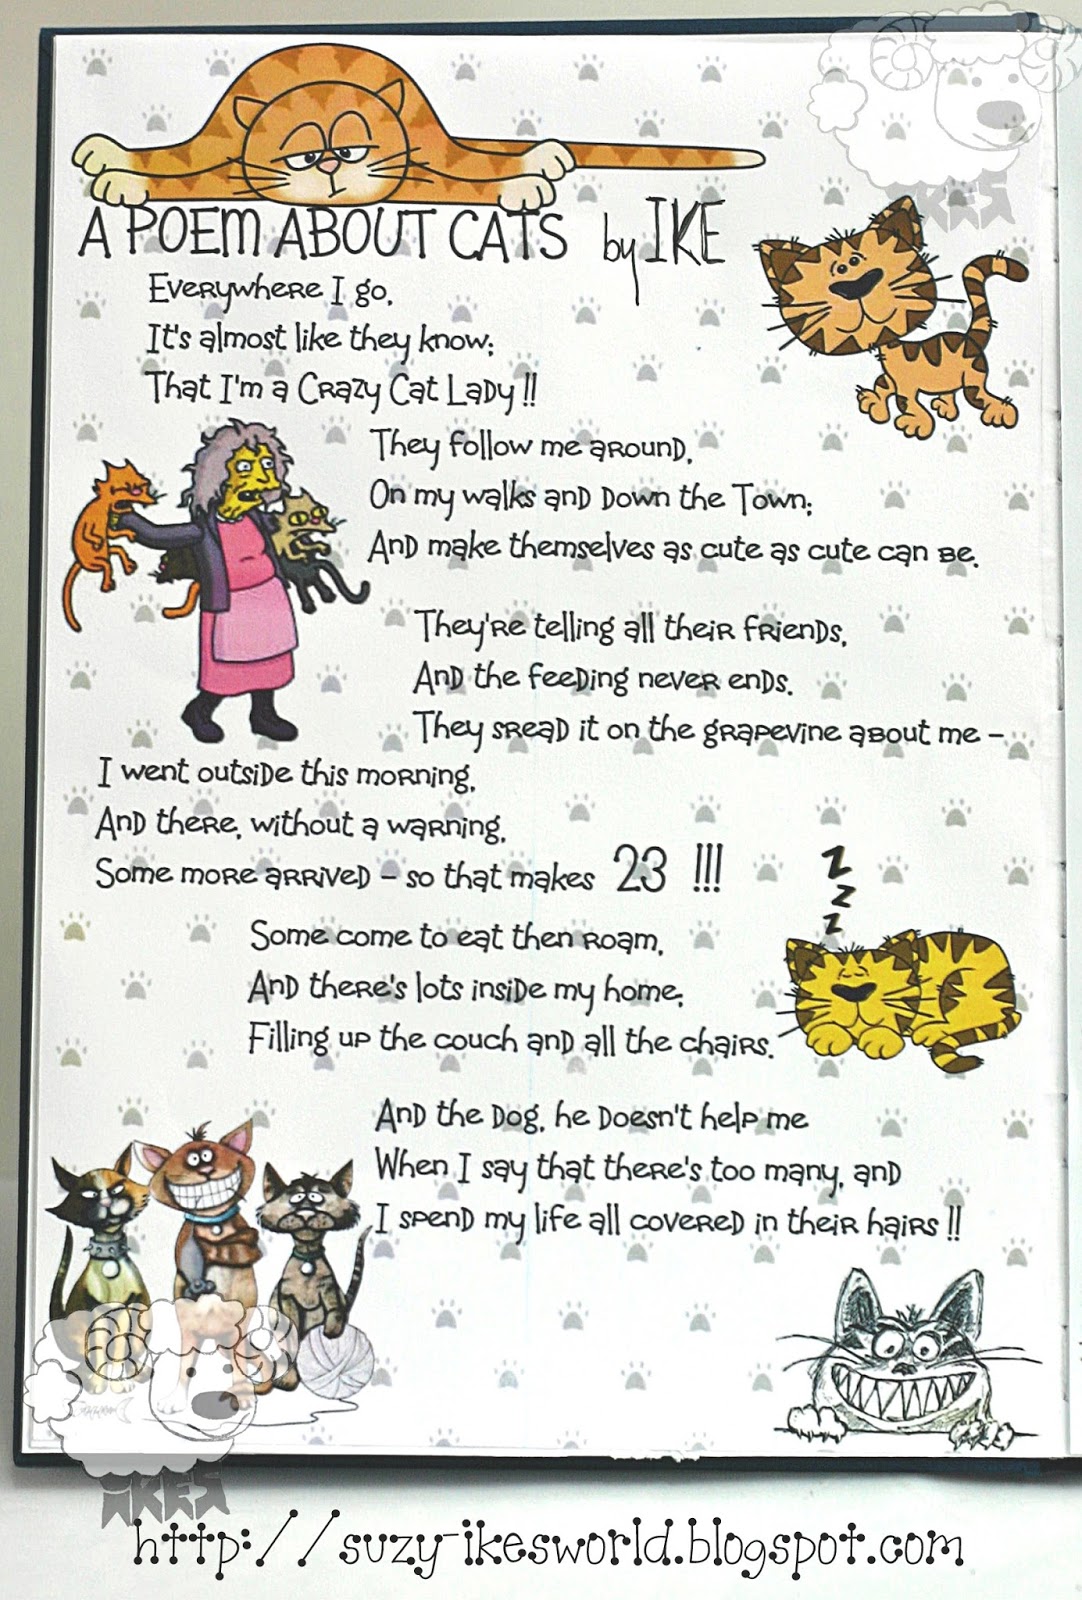 A POEM ABOUT CATS by IKE
Everywhere I go,
It's almost like they know;
That I'm a Crazy Cat Lady !!
They follow me around,
On my walks and down the Town;
And make themselves as cute as cute can be.
They're telling all their friends,
And the feeding never ends.
They sread it on the grapevine about me –
I went outside this morning,
And there, without a warning,
Some more arrived – so that makes 23 !!!
Z
Z
Z
Some come to eat then roam,
And there's lots inside my home;
Filling up the couch and all the chairs.
And the Dog, he doesn't help me
When I say that there's too many, and
I spend my life all covered in their hairs !!
IKES
IKES
http://suzy-ikesworld.blogspot.com